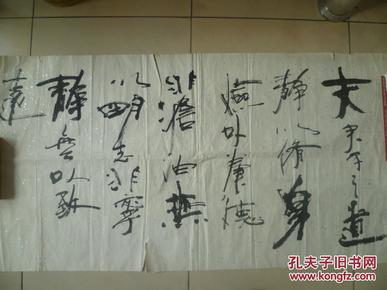 夫君子之道
静以脩身
儉以養德
非澹泊無
以明志非寧
静無以致
遠
孔夫子旧书网
KONGFZ.COM